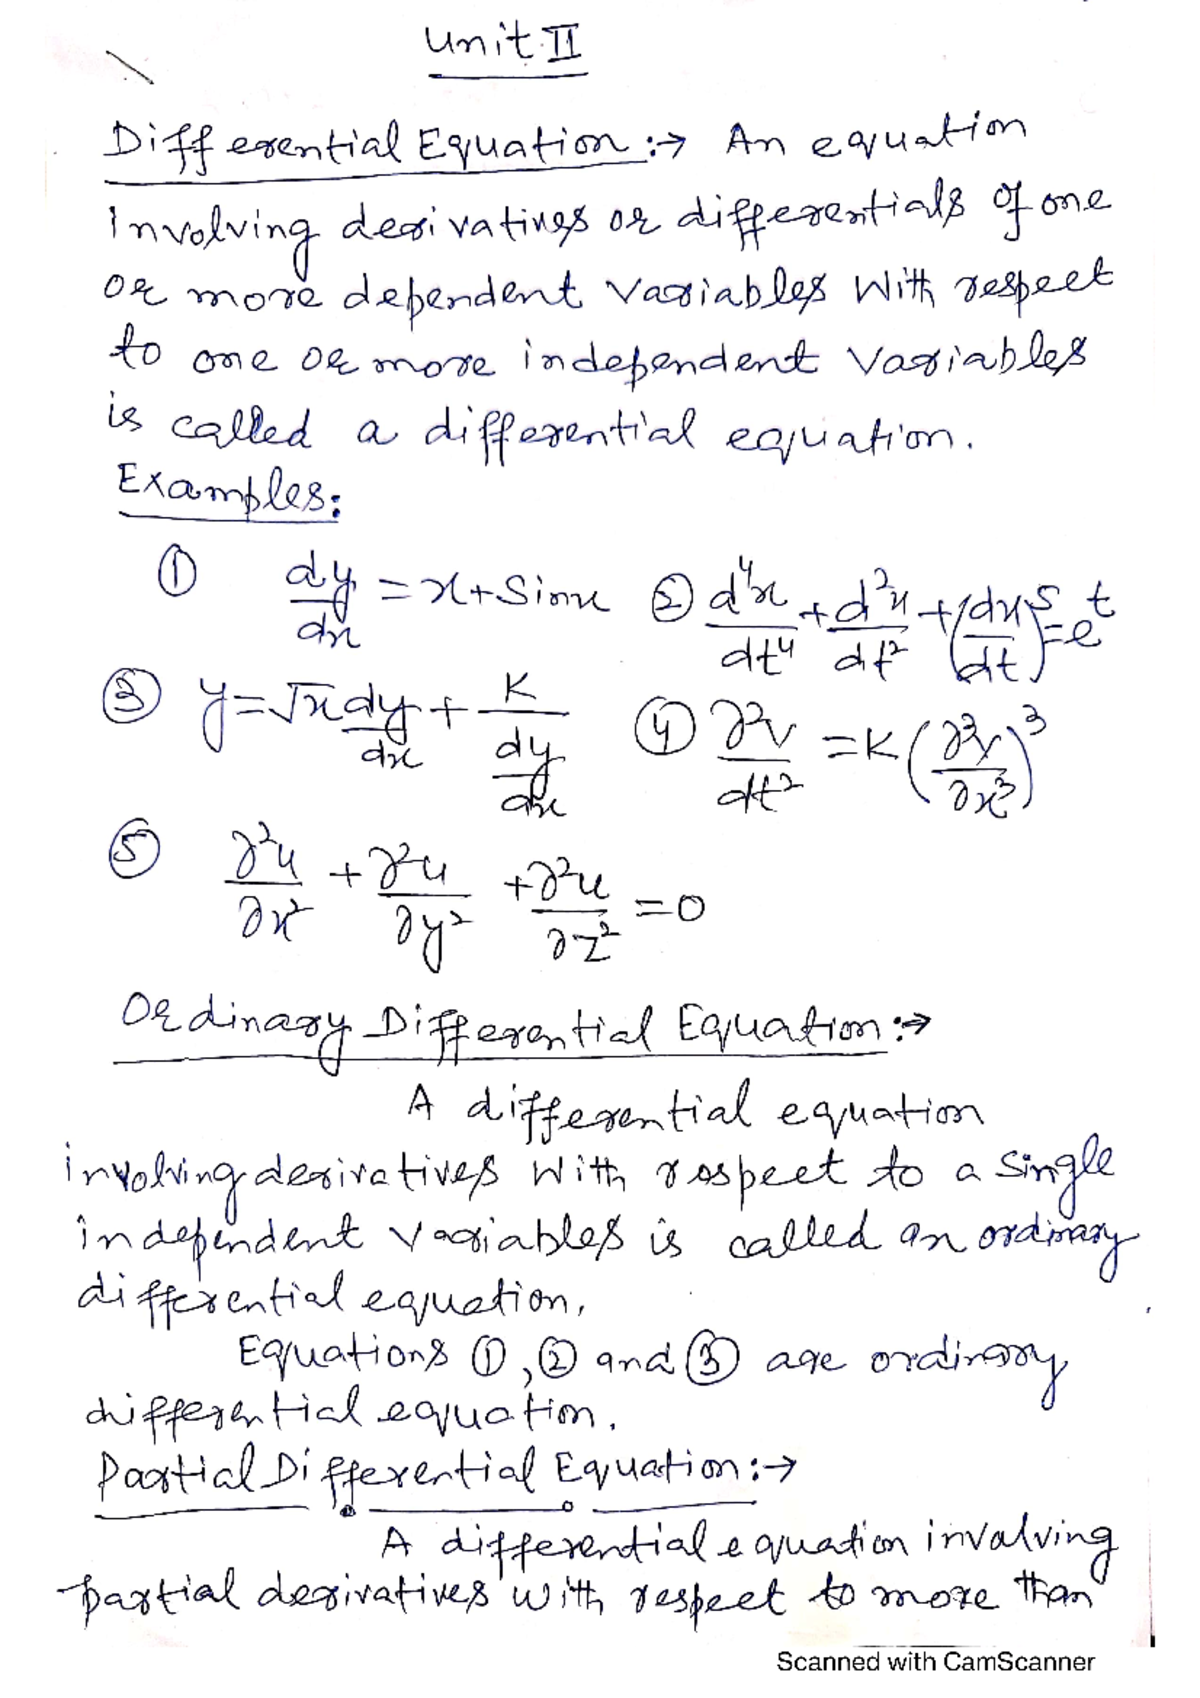 Unit II
Differential Equation :→ An equation
involving derivatives or differentials of one
or more dependent variables with respect
to one or more independent variables
is called a differential equation.
Examples:
① dy/dx = x + sinx ② d⁴x/dt⁴ + d²x/dt² + (dx/dt)⁵ = eᵗ
③ y = √x dy/dx + K/(dy/dx) ④ ∂²v/dt² = K(∂³v/∂x³)³
⑤ ∂²u/∂x² + ∂²u/∂y² + ∂²u/∂z² = 0
Ordinary Differential Equation :→
A differential equation
involving derivatives with respect to a single
independent variables is called an ordinary
differential equation.
Equations ①, ② and ③ are ordinary
differential equation.
Partial Differential Equation :→
A differential equation involving
partial derivatives with respect to more than
Scanned with CamScanner